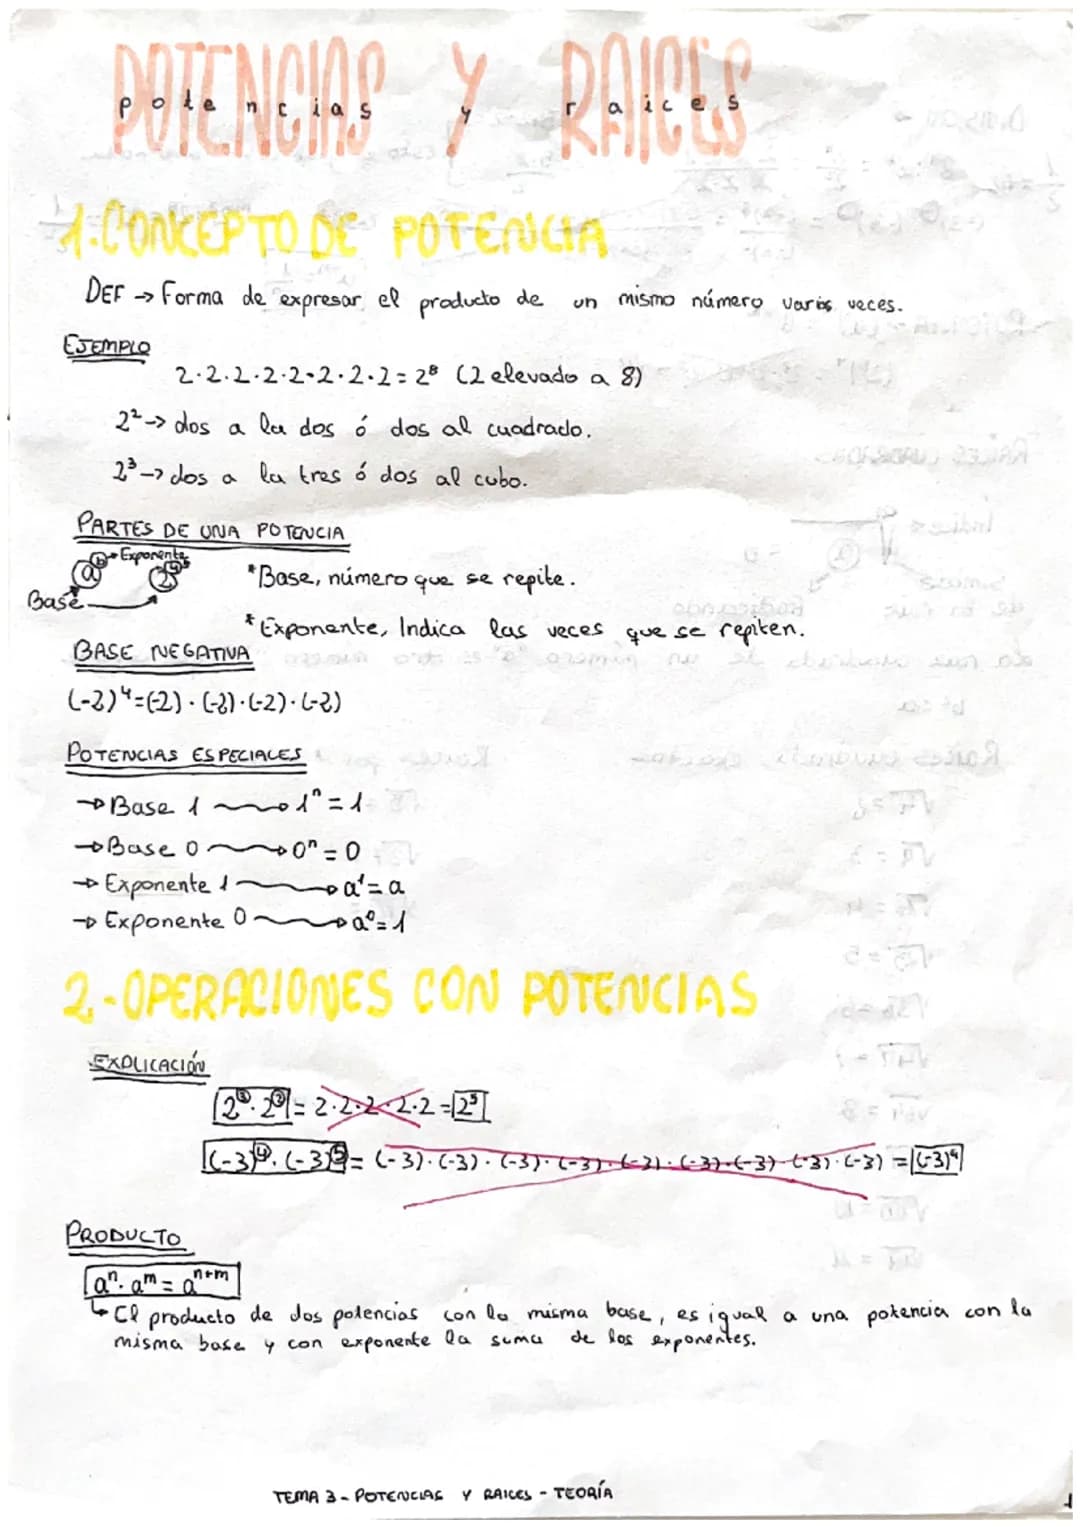 POTENCIAS Y RAICES
potencias y raices
1.CONCEPTO DE POTENCIA
DEF → Forma de expresar el producto de un mismo número varias veces.
EJEMPLO
2·2·2·2·2·2·2·2=2⁸ (2 elevado a 8)
2²→ dos a la dos ó dos al cuadrado.
2³→ dos a la tres ó dos al cubo.
PARTES DE UNA POTENCIA
a ᵇ → Exponente 2⁴
Base
*Base, número que se repite.
*Exponente, Indica las veces que se repiten.
BASE NEGATIVA
(-2)⁴=(-2)·(-2)·(-2)·(-2)
POTENCIAS ESPECIALES
→Base 1 → 1ⁿ=1
→Base 0 → 0ⁿ=0
→Exponente 1 → a¹=a
→Exponente 0 → a⁰=1
2.-OPERACIONES CON POTENCIAS
EXPLICACIÓN
2³·2²= 2·2·2·2·2=2⁵
(-3)⁴·(-3)⁵= (-3)·(-3)·(-3)·(-3)·(-3)·(-3)·(-3)·(-3)·(-3) =(-3)⁹
PRODUCTO
aⁿ·aᵐ=aⁿ⁺ᵐ
↳ El producto de dos potencias con la misma base, es igual a una potencia con la
misma base y con exponente la suma de los exponentes.
TEMA 3 - POTENCIAS Y RAICES - TEORÍA
1